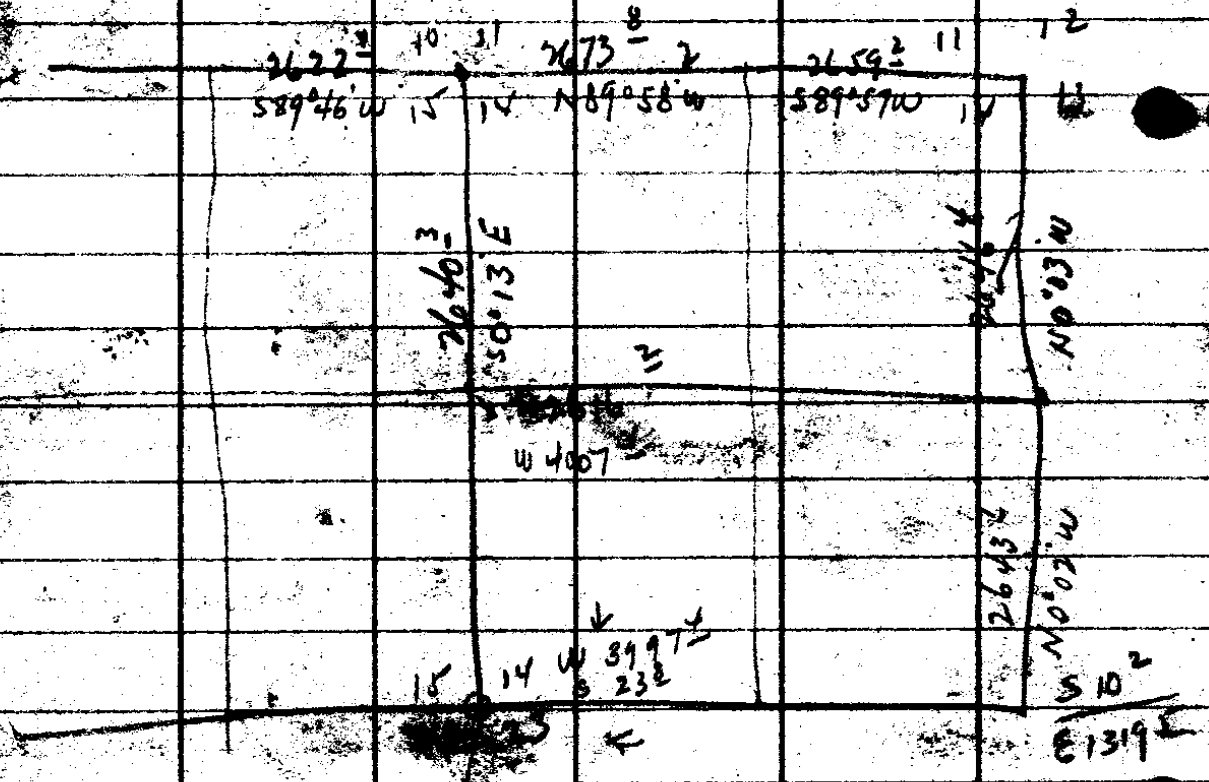 2622 10 11 2673 8 2 2659 2 11 12
S89°46'W 15 14 N89°58'W S89°57W 14 13
2640 3
S0°13'E
N0°03'W
2
W 4007
2643
N0°02'W
15 14 W 3997 4
S 23 2
23
S 10 2
E 1319